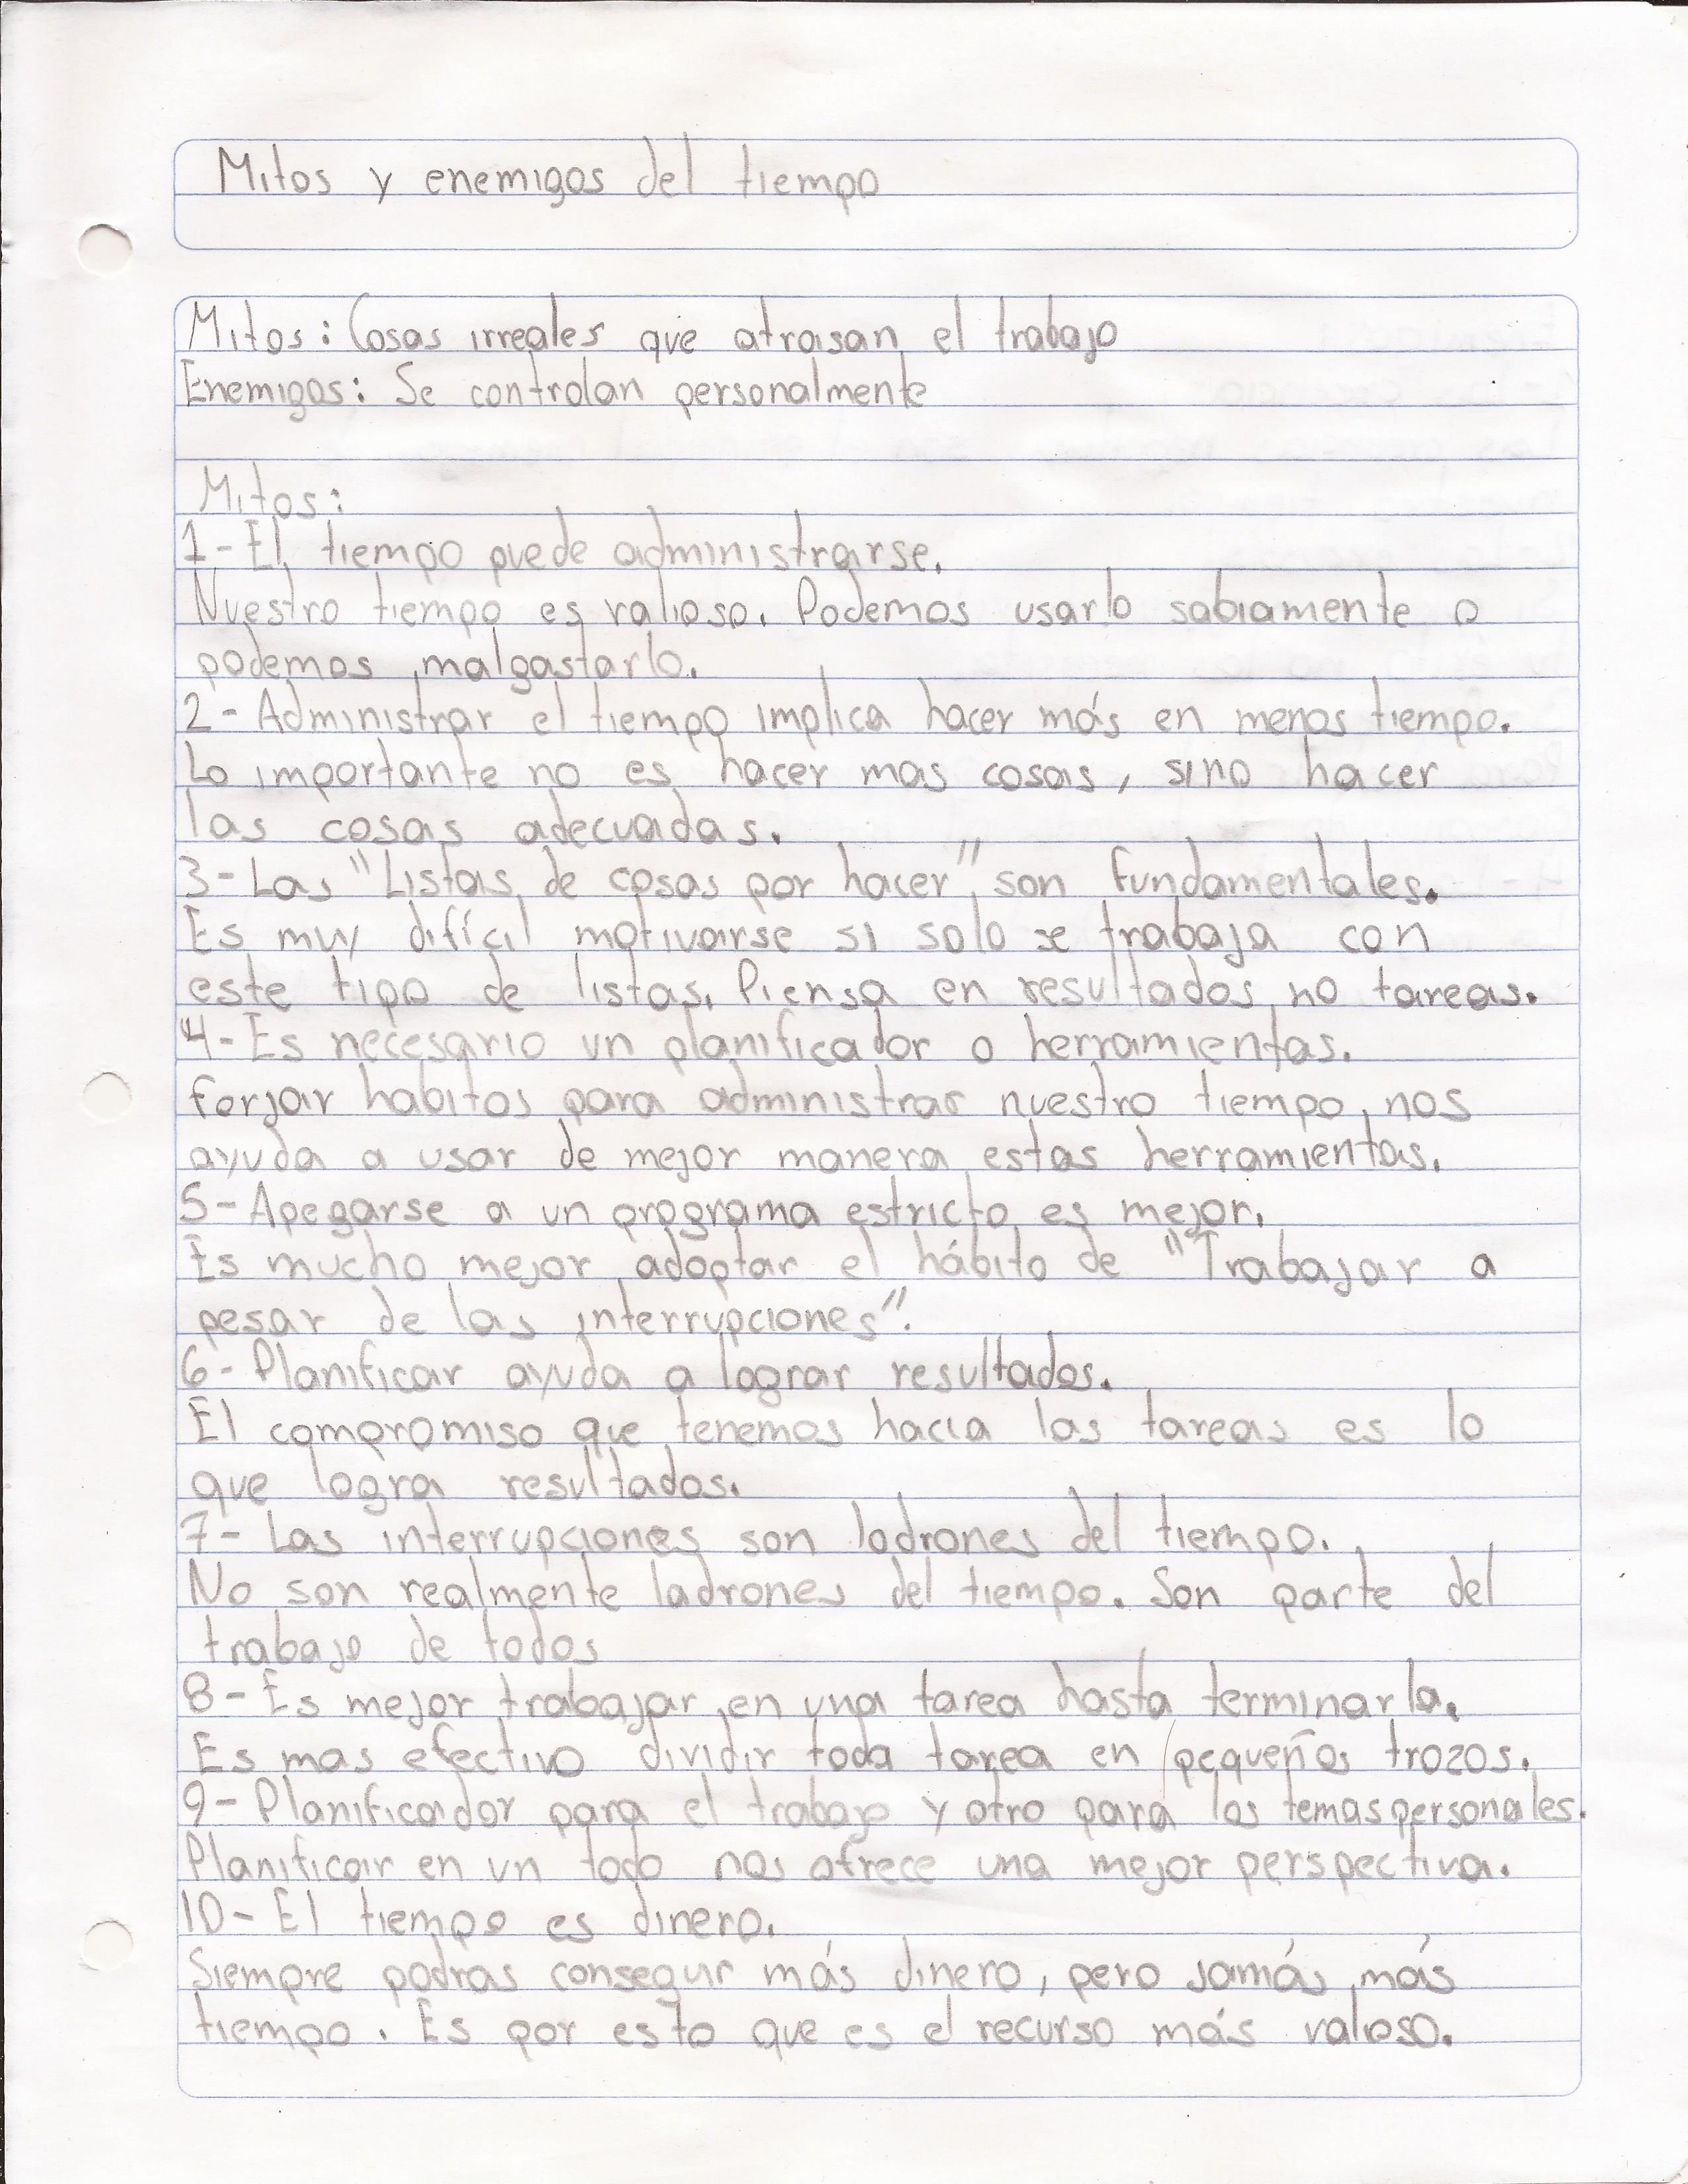 Mitos y enemigos del tiempo
Mitos: Cosas irreales que atrasan el trabajo
Enemigos: Se controlan personalmente
Mitos:
1- El tiempo puede administrarse.
Nuestro tiempo es valioso. Podemos usarlo sabiamente o
podemos malgastarlo.
2- Administrar el tiempo implica hacer más en menos tiempo.
Lo importante no es hacer mas cosas, sino hacer
las cosas adecuadas.
3- Las "Listas de cosas por hacer" son fundamentales.
Es muy difícil motivarse si solo se trabaja con
este tipo de listas. Piensa en resultados no tareas.
4- Es necesario un planificador o herramientas.
Forjar habitos para administrar nuestro tiempo, nos
ayuda a usar de mejor manera estas herramientas.
5- Apegarse a un programa estricto es mejor.
Es mucho mejor adoptar el hábito de "Trabajar a
pesar de las interrupciones".
6- Planificar ayuda a lograr resultados.
El compromiso que tenemos hacia las tareas es lo
que logra resultados.
7- Las interrupciones son ladrones del tiempo.
No son realmente ladrones del tiempo. Son parte del
trabajo de todos
8- Es mejor trabajar en una tarea hasta terminarla.
Es mas efectivo dividir toda tarea en pequeños trozos.
9- Planificador para el trabajo y otro para los temas personales.
Planificar en un todo nos ofrece una mejor perspectiva.
10- El tiempo es dinero.
Siempre podras conseguir más dinero, pero jamás más
tiempo. Es por esto que es el recurso más valioso.